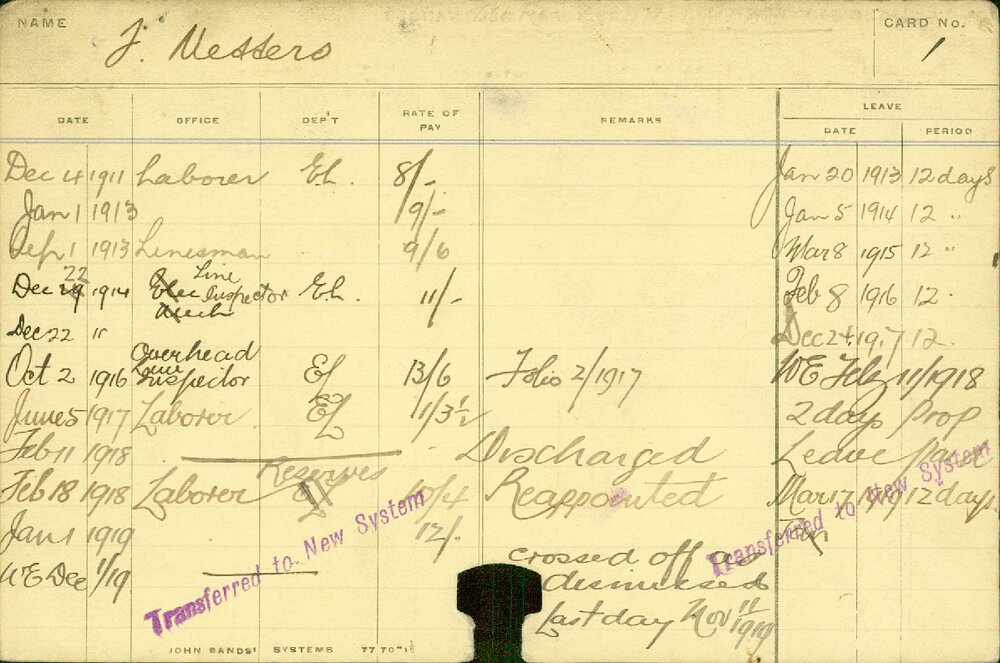 NAME J. Messers CARD No. 1
LEAVE
DATE OFFICE DEP'T RATE OF PAY REMARKS DATE PERIOD
Dec 4 1911 Laborer EL. 8/- Jan 20 1913 12 days
Jan 1 1913 9/- Jan 5 1914 12 "
Sept 1 1913 Linesman 9/6 Mar 8 1915 12 "
Dec 22 1914 Line Inspector EL. 11/- Feb 8 1916 12 .
Dec 22 " Dec 24 1917 12 .
Oct 2 1916 Overhead Line Inspector EL 13/6 Folio 2/1917 WE Feb 11/1918
June 5 1917 Laborer EL 1/3½ 2 days Prop
Feb 11 1918 Discharged Leave
Feb 18 1918 Laborer Reserves 10/4 Reappointed Mar 17 12 days
Jan 1 1919 12/-
WE Dec 1/19 crossed off as
dismissed
Last day Nov 11 1919
Transferred to New System
Transferred to New System
JOHN SANDS' SYSTEMS